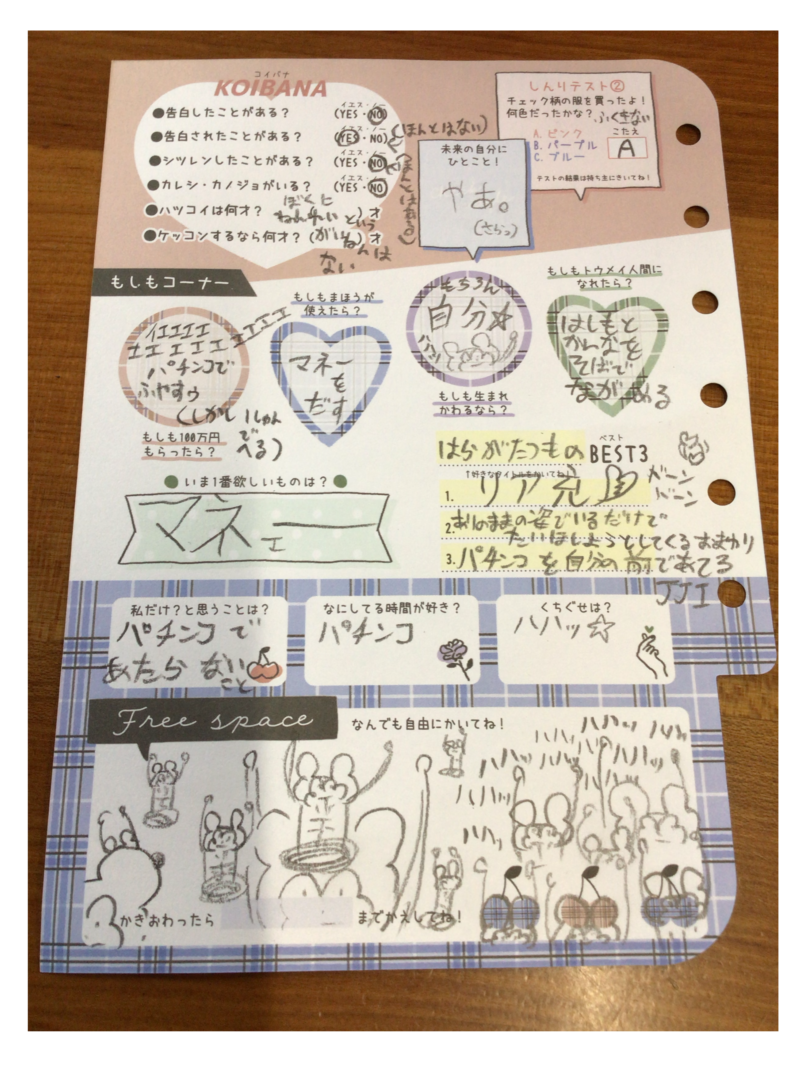 コイバナ
KOIBANA
イエス・ノー
●告白したことがある? (YES・NO)
イエス・ノー
●告白されたことがある? (YES・NO) (ほんとはない)
イエス・ノー
●シツレンしたことがある? (YES・NO)
イエス・ノー
●カレシ・カノジョがいる? (YES・NO)
●ハツコイは何才? ( )才
●ケッコンするなら何才? ( )才
ぼくに
ねんれい という
がいねんは
ない
しんりテスト②
チェック柄の服を買ったよ!
何色だったかな?
A. ピンク
B. パープル
C. ブルー
こたえ
A
テストの結果は持ち主にきいてね!
未来の自分に
ひとこと!
やあ。
(さらっ)
もしもコーナー
イエエエエ
エエエエエエエエエ
パチンコで
ふやすゥ
(しかしいしゅん
で
へる)
もしも100万円
もらったら?
もしもまほうが
使えたら?
マネー
を
だす
もちろん
自分☆
ハハッ
もしも生まれ
かわるなら?
もしもトウメイ人間に
なれたら?
はしもと
かんなを
そばで
ながめる
いま1番欲しいものは?
マネェー
はらがたつもの
ベスト
BEST3
↑好きなタイトルをかいてね!
1. リア充
2. ありのままの姿でいるだけで
たいほしようとしてくるおまわり
3. パチンコを自分の前であてる
JJI
私だけ?と思うことは?
パチンコで
あたらない
こと
なにしてる時間が好き?
パチンコ
くちぐせは?
ハハッ☆
Free space
なんでも自由にかいてね!
ハハッ ハハッ
ハハッ ハハッ
ハハッ ハハッ
ハハッ
ハハッ
かきおわったら
までかえしてね!